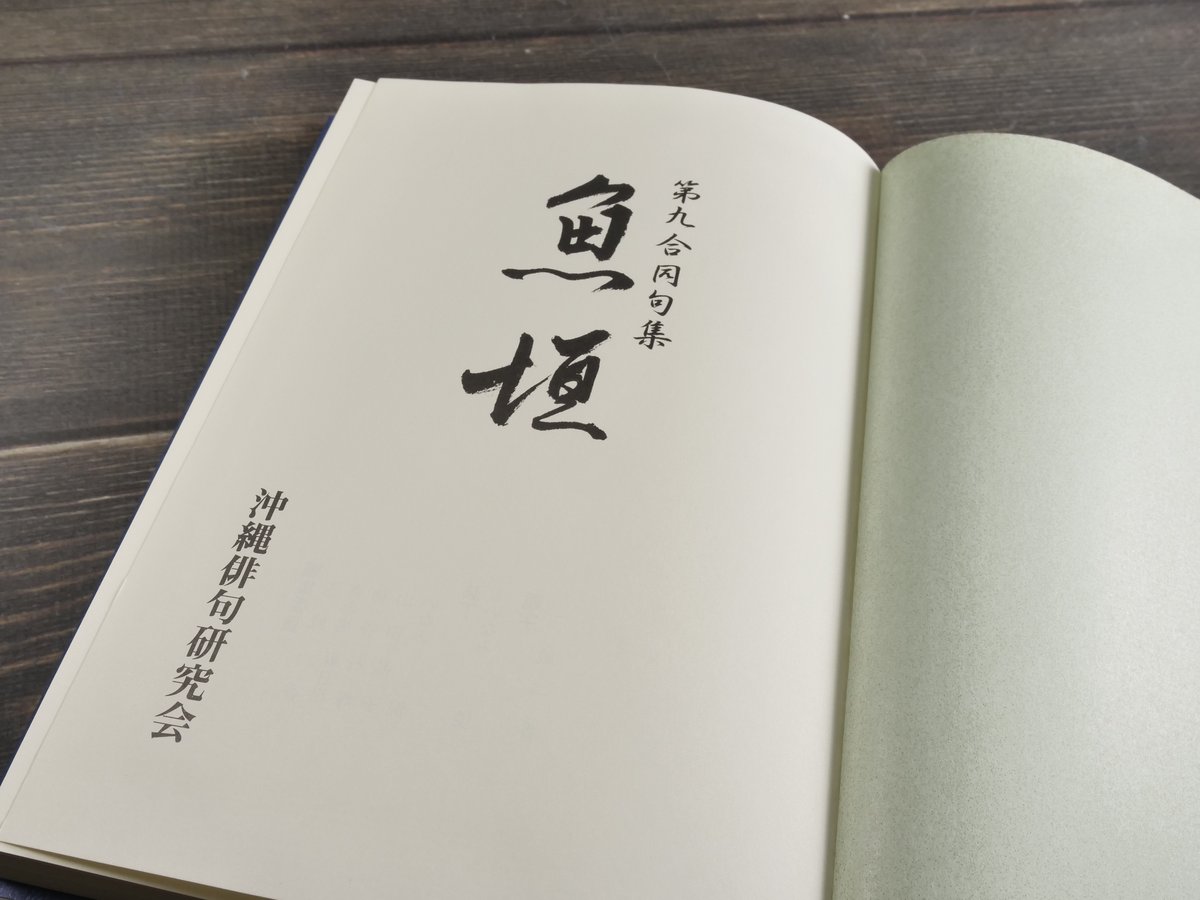 第九合同句集
魚垣
沖縄俳句研究会